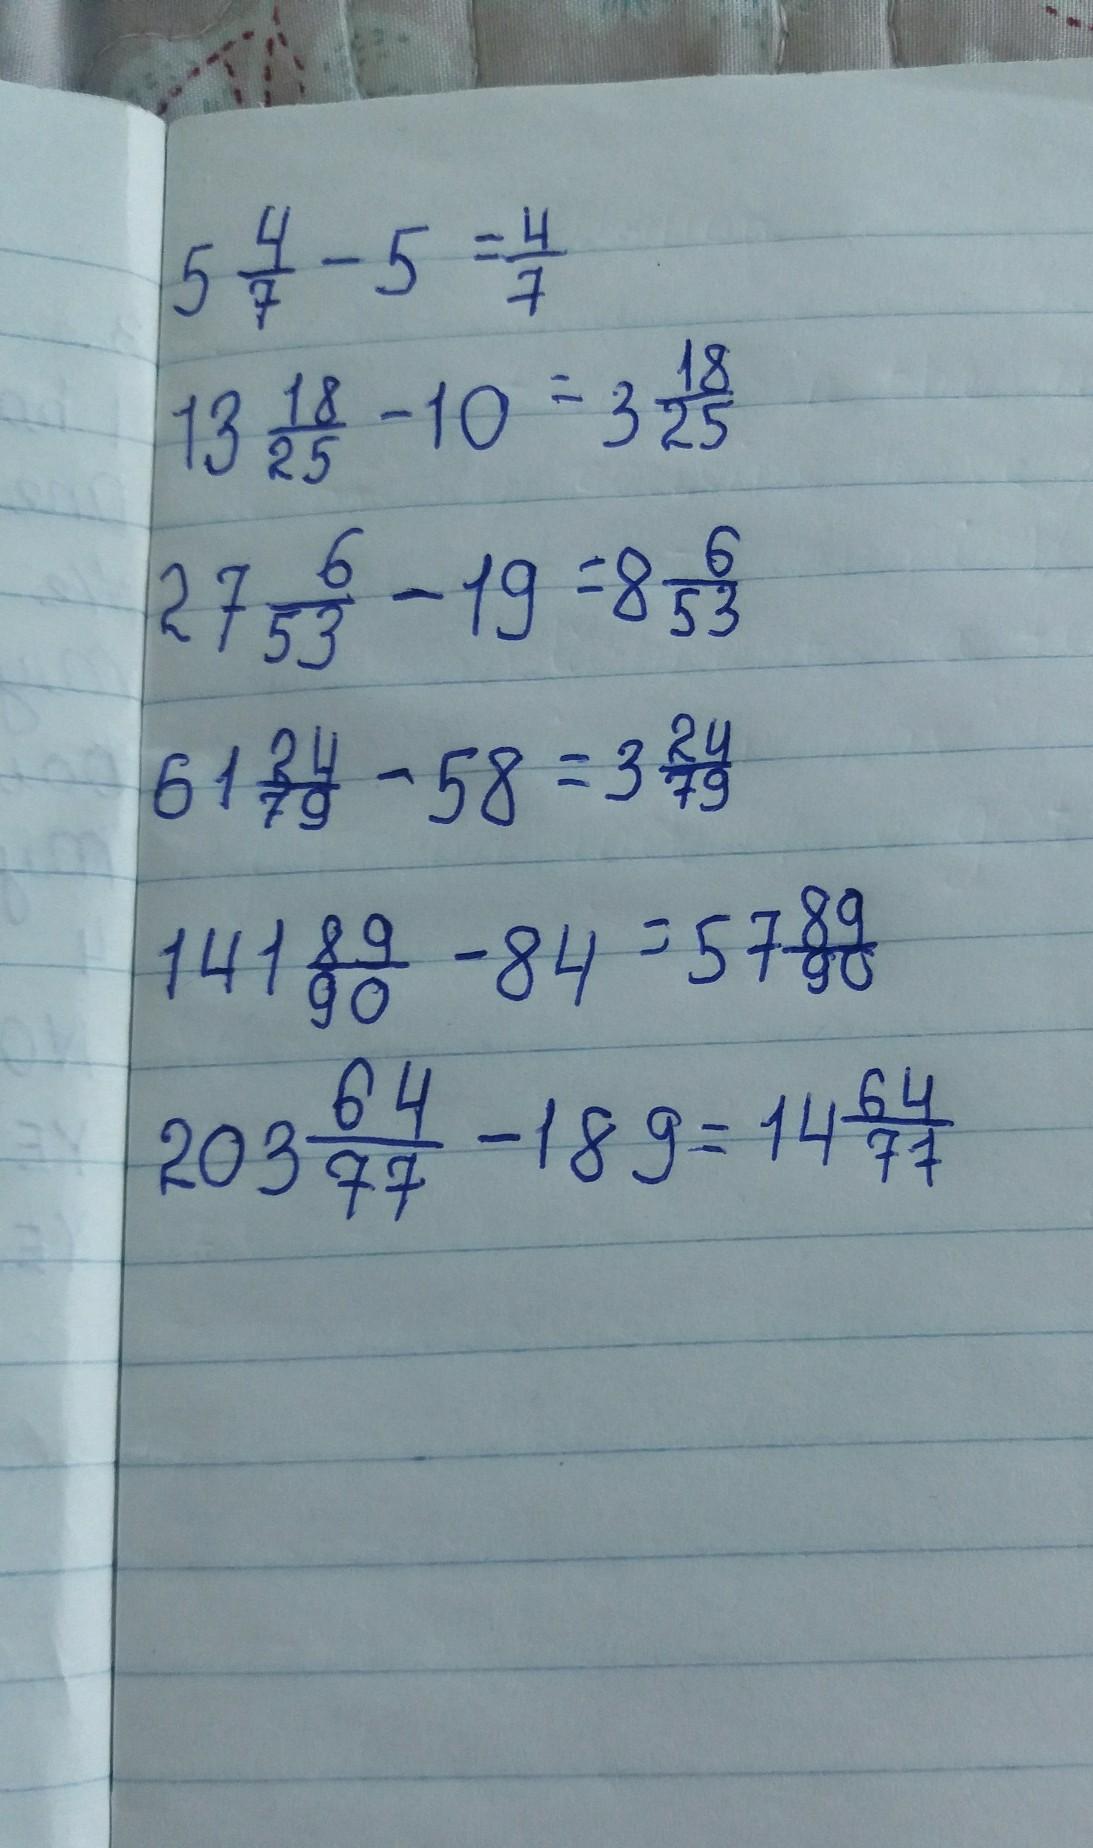 5 4/7 - 5 = 4/7
13 18/25 - 10 = 3 18/25
27 6/53 - 19 = 8 6/53
61 24/79 - 58 = 3 24/79
141 89/90 - 84 = 57 89/90
203 64/77 - 189 = 14 64/77